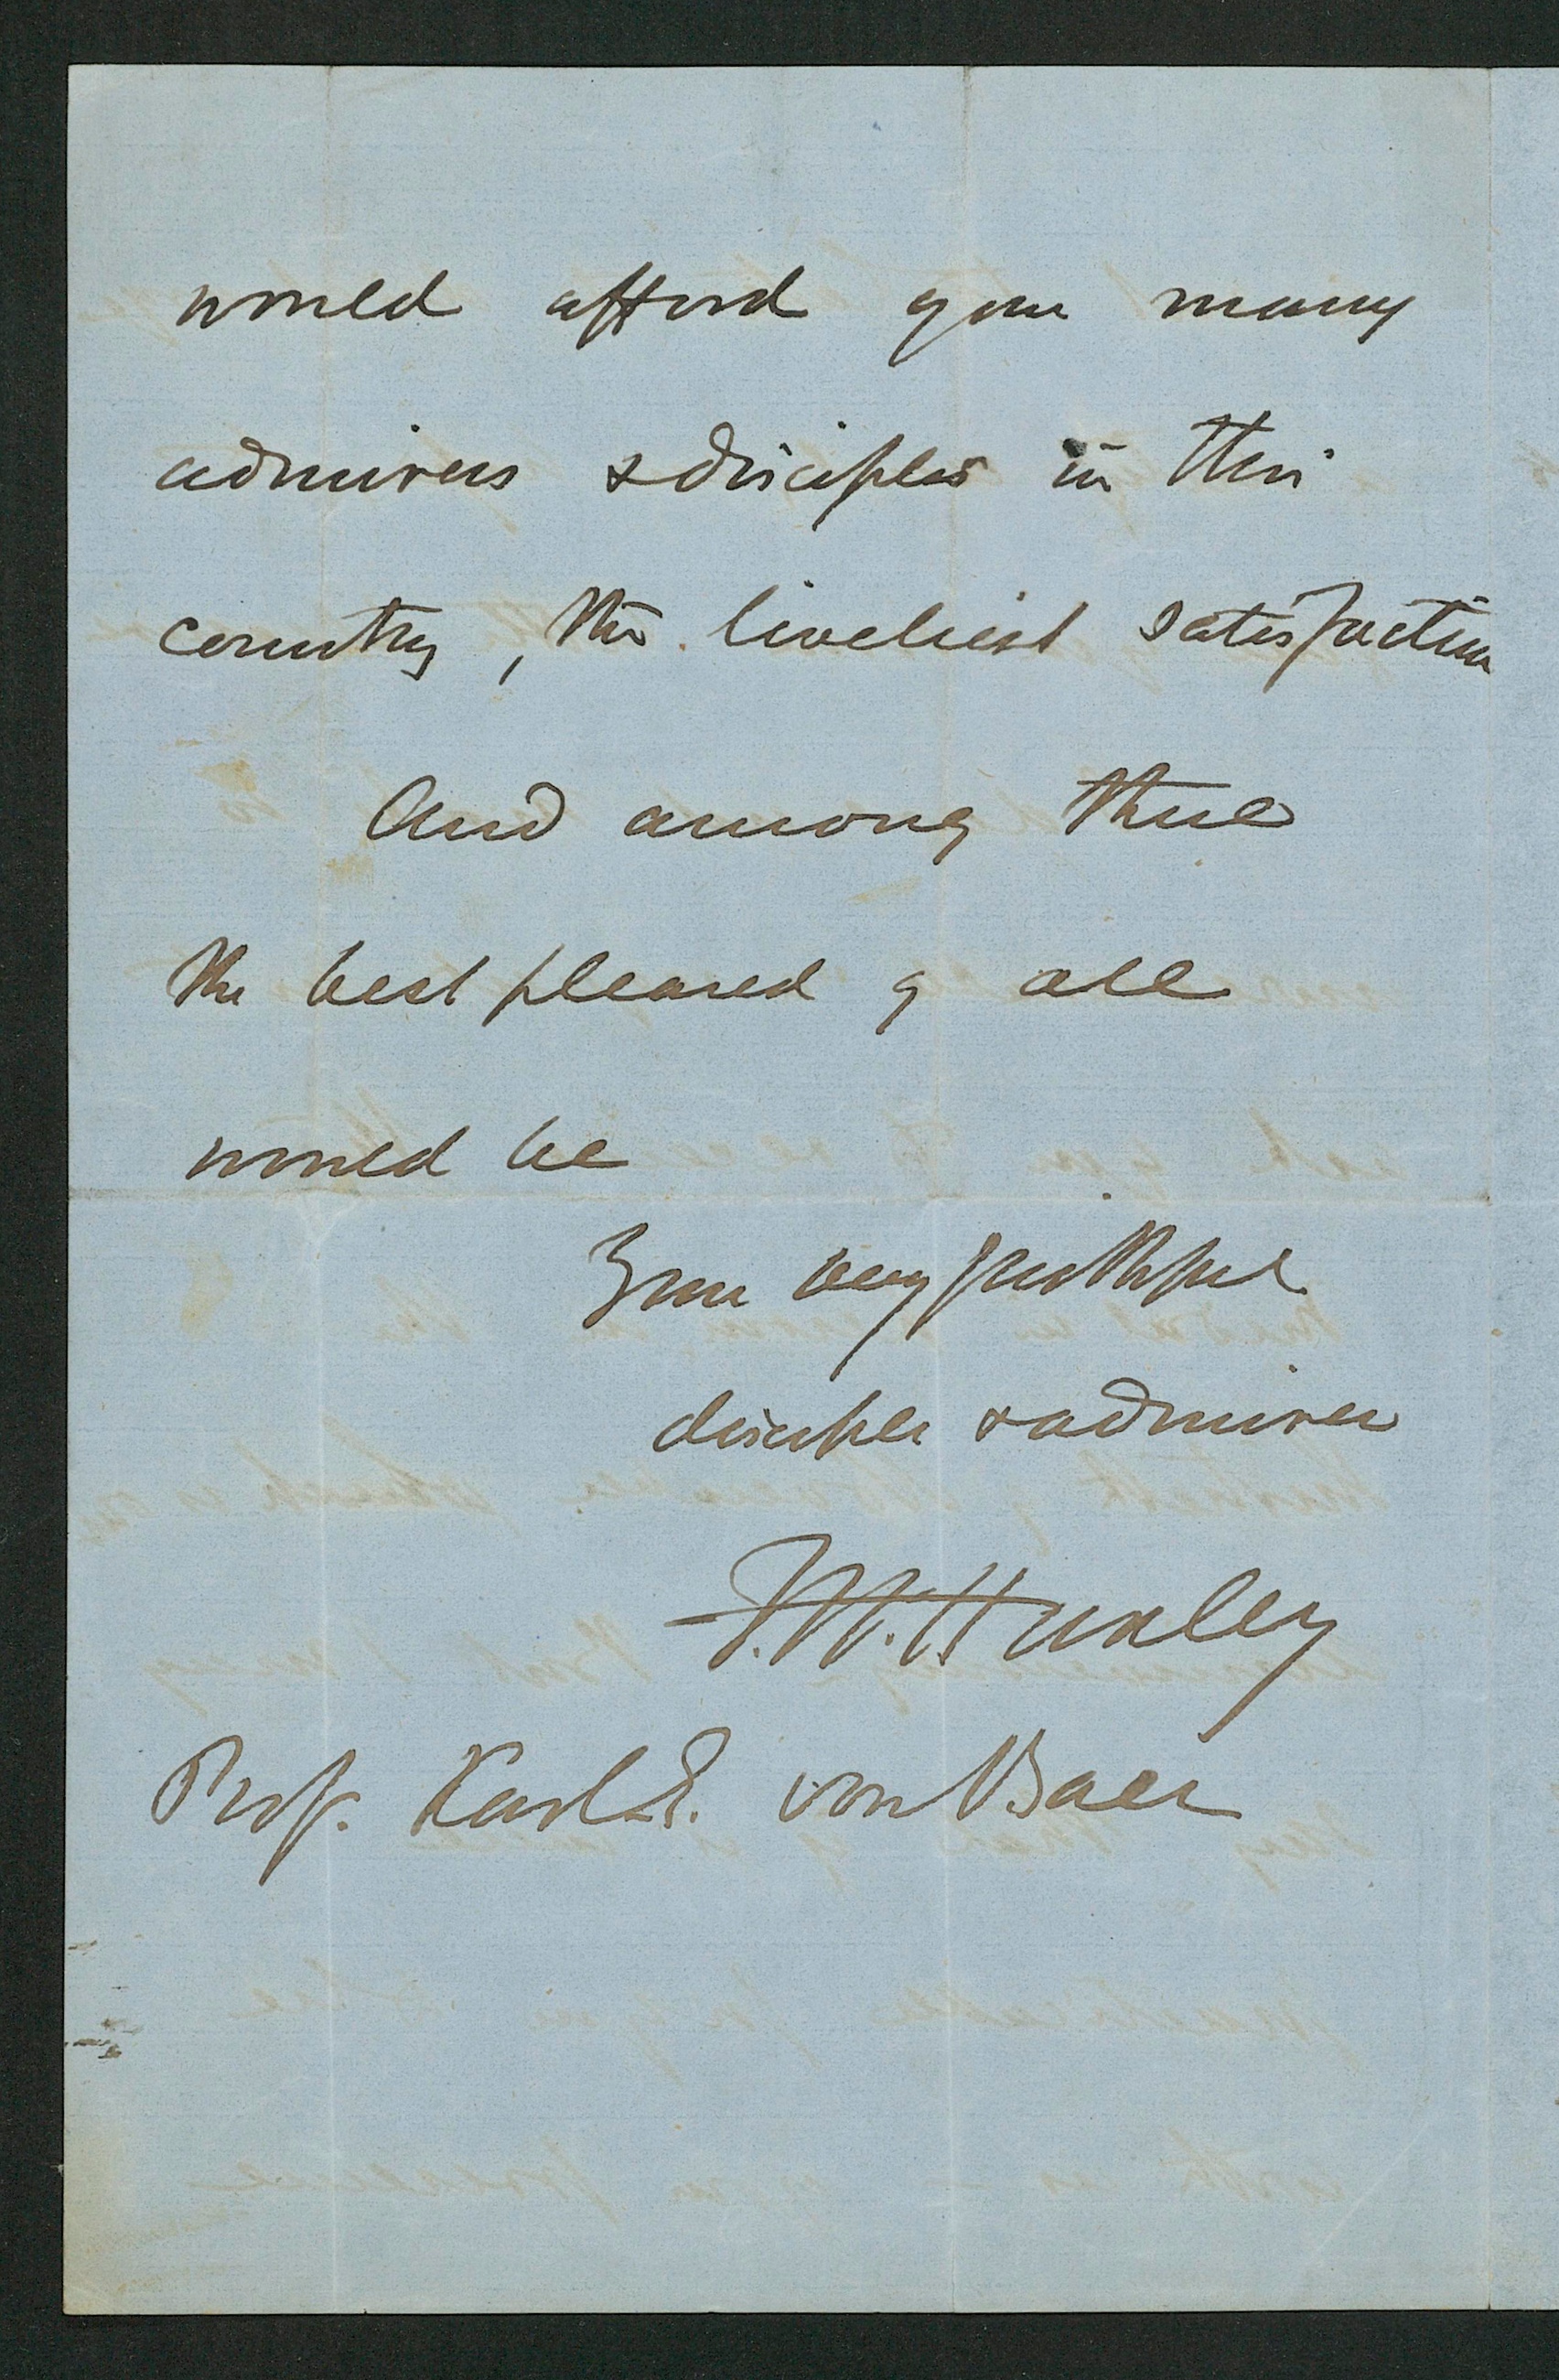 would afford your many
admirers & disciples in this
country, the liveliest satisfaction
And among these
the best pleased of all
would be
Your very faithful
disciple & admirer
T. H. Huxley
Prof. Karl E. von Baer